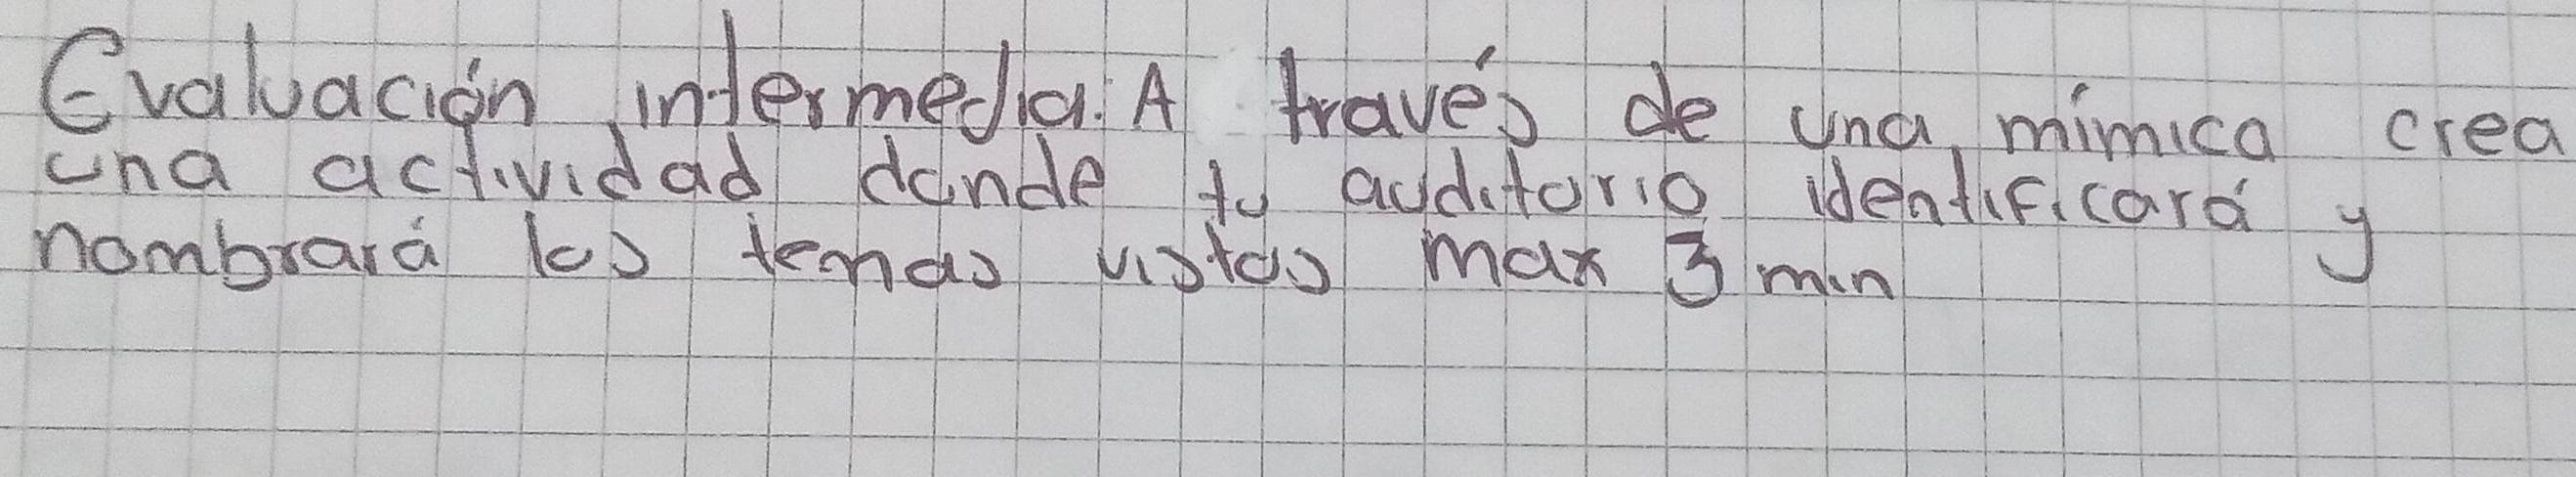 Evaluación intermedia: A través de una mímica crea
una actividad donde tu auditorio identificará y
nombrará los temas vistos max 3 min